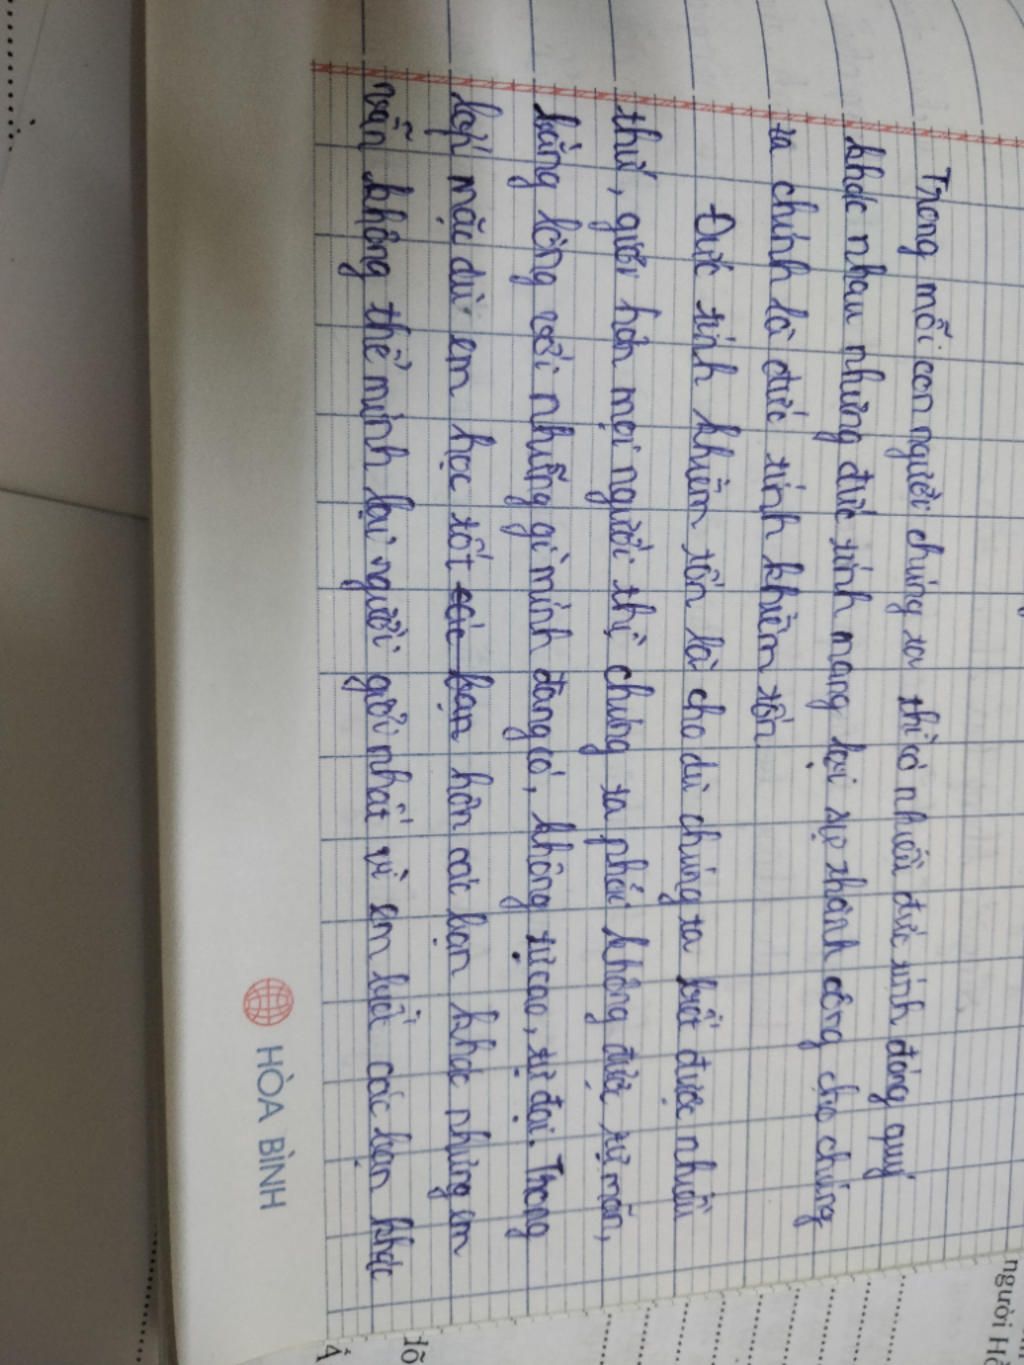 Trong mỗi con người chúng ta thì có nhiều đức tính đáng quý
khác nhau nhưng đức tính mang lại sự thành công cho chúng
ta chính là đức tính khiêm tốn.
Đức tính khiêm tốn là cho dù chúng ta biết được nhiều
thứ, giỏi hơn mọi người thì chúng ta phải không được tự mãn,
bằng lòng với những gì mình đang có, không tự cao, tự đại. Trong
lớp mặc dù em học tốt các bạn hơn các bạn khác nhưng em
vẫn không thể mình là người giỏi nhất vì em biết các bạn khác
HÒA BÌNH
người